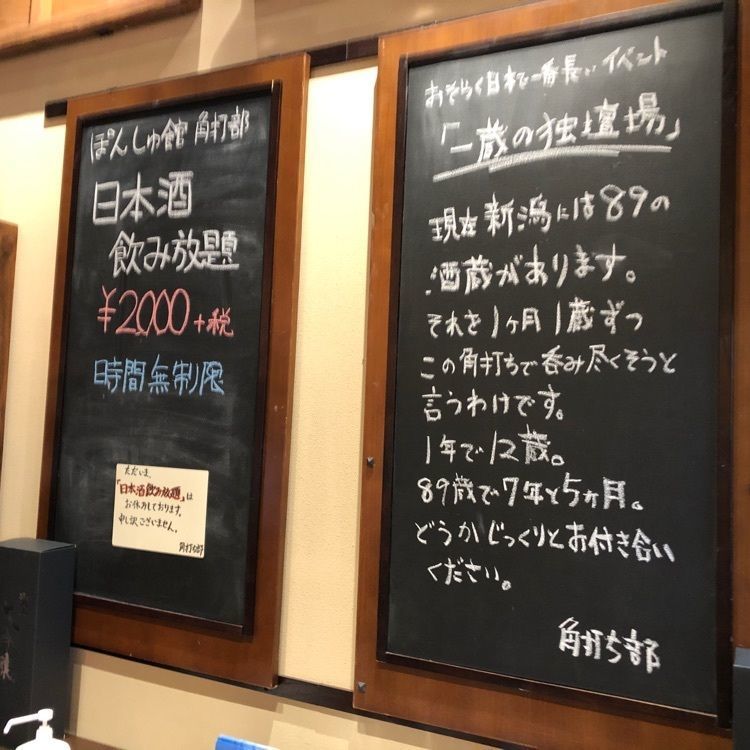 ぽんしゅ館 角打部
日本酒
飲み放題
¥2000+税
時間無制限
ただいま、
「日本酒飲み放題」は
お休みしております。
申し訳ございません。
角打ち部
おそらく日本で一番長いイベント
「一蔵の独壇場」
現在新潟には89の
酒蔵があります。
それを1ヶ月1蔵ずつ
この角打ちで呑み尽くそうと
言うわけです。
1年で12蔵。
89蔵で7年と5ヵ月。
どうかじっくりとお付き合い
ください。
角打ち部